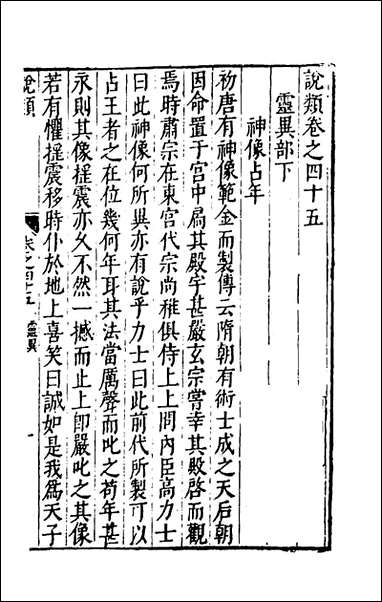 說類卷之四十五
靈異部下
神像占年
初唐有神像範金而製傳云隋朝有術士成之天后朝
因命置于宮中扃其殿宇甚嚴玄宗嘗幸其殿啓而觀
焉時肅宗在東宮代宗尚稚俱侍上上問內臣高力士
曰此神像何所異亦有說乎力士曰此前代所製可以
占王者之在位幾何年耳其法當厲聲而叱之苟年甚
永則其像搖震亦久不然一撼而止上卽嚴叱之其像
若有懼搖震移時仆於地上喜笑曰誠如是我爲天子
說類
卷之四十五 靈異 一